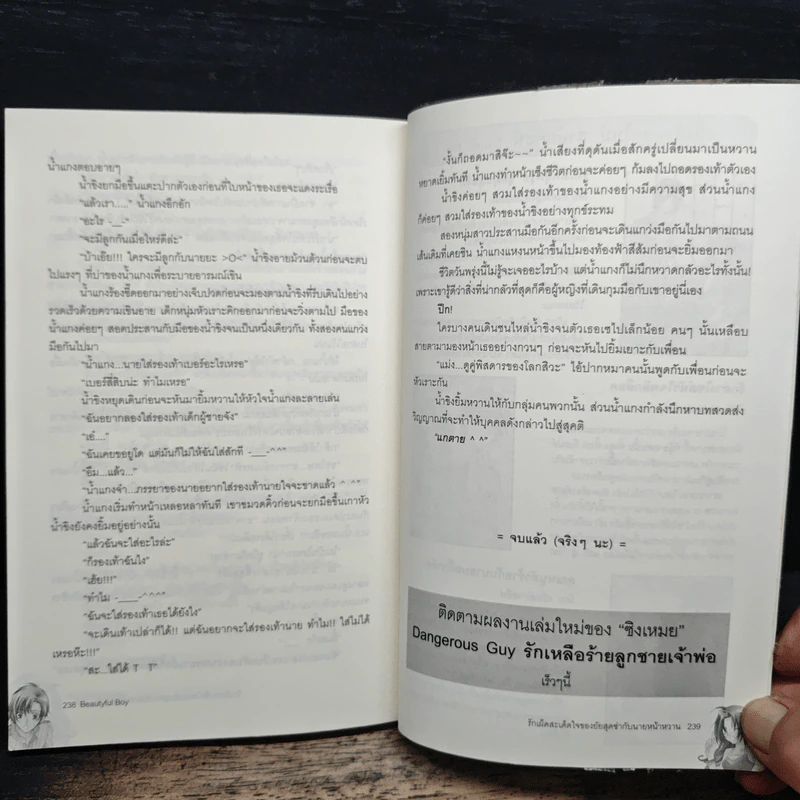 น้ำแกงตอบอายๆ
น้ำชิงยกมือขึ้นแตะปากตัวเองก่อนที่ใบหน้าของเธอจะแดงระเรื่อ
"แล้วเรา....." น้ำแกงอึกอัก
"อะไร -__-"
"จะมีลูกกันเมื่อไหร่ดีล่ะ"
"บ้าเอ๊ย!!! ใครจะมีลูกกับนายยะ >O<" น้ำชิงอายม้วนตัวก่อนจะตบ
ไปแรงๆ ที่บ่าของน้ำแกงเพื่อระบายอารมณ์เขิน
น้ำแกงร้องซี้ดออกมาอย่างเจ็บปวดก่อนจะมองตามน้ำชิงที่รีบเดินไปอย่าง
รวดเร็วด้วยความเขินอาย เด็กหนุ่มหัวเราะคิกออกมาก่อนจะวิ่งตามไป มือของ
น้ำแกงค่อยๆ สอดประสานกับมือของน้ำชิงจนเป็นหนึ่งเดียวกัน ทั้งสองคนแกว่ง
มือกันไปมา
"น้ำแกง...นายใส่รองเท้าเบอร์อะไรเหรอ"
"เบอร์สี่สิบน่ะ ทำไมเหรอ"
น้ำชิงหยุดเดินก่อนจะหันมายิ้มหวานให้หัวใจน้ำแกงละลายเล่น
"ฉันอยากลองใส่รองเท้าเด็กผู้ชายจัง"
"เอ๋...."
"ฉันเคยขออยู่ใด แต่มันก็ไม่ให้ฉันใส่สักที -___-^^"
"อืม...แล้ว..."
"น้ำแกงจ๋า...ภรรยาของนายอยากใส่รองเท้านายใจจะขาดแล้ว ^ ^"
น้ำแกงเริ่มทำหน้าเหลอหลาทันที เขาขมวดคิ้วก่อนจะยกมือขึ้นเกาหัว
น้ำชิงยังคงยิ้มอยู่อย่างนั้น
"แล้วฉันจะใส่อะไรล่ะ"
"ก็รองเท้าฉันไง"
"เฮ้ย!!!"
"ทำไม -____-^^^"
"ฉันจะใส่รองเท้าเธอได้ยังไง"
"จะเดินเท้าเปล่าก็ได้!! แต่ฉันอยากจะใส่รองเท้านาย ทำไม!! ใส่ไม่ได้
เหรอห๊ะ!!!"
"สะ...ใส่ได้ T T"
238 Beautyful Boy
"งั้นก็ถอดมาสิจ๊ะ~~" น้ำเสียงที่ดุดันเมื่อสักครู่เปลี่ยนมาเป็นหวาน
หยาดเยิ้มทันที น้ำแกงทำหน้าเซ็งชีวิตก่อนจะค่อยๆ ก้มลงไปถอดรองเท้าตัวเอง
น้ำชิงค่อยๆ สวมใส่รองเท้าของน้ำแกงอย่างมีความสุข ส่วนน้ำแกง
ก็ค่อยๆ สวมใส่รองเท้าของน้ำชิงอย่างทุกข์ระทม
สองหนุ่มสาวประสานมือกันอีกครั้งก่อนจะเดินแกว่งมือกันไปมาตามถนน
เส้นเดิมที่เคยชิน น้ำแกงแหงนหน้าขึ้นไปมองท้องฟ้าสีส้มก่อนจะยิ้มออกมา
ชีวิตวันพรุ่งนี้ไม่รู้จะเจออะไรบ้าง แต่น้ำแกงก็ไม่นึกหวาดกลัวอะไรทั้งนั้น!
เพราะเขารู้ดีว่าสิ่งที่น่ากลัวที่สุดก็คือผู้หญิงที่เดินกุมมือกับเขาอยู่นี่เอง
ปึก!
ใครบางคนเดินชนไหล่น้ำชิงจนตัวเธอเซไปเล็กน้อย คนๆ นั้นเหลือบ
สายตามามองหน้าเธออย่างกวนๆ ก่อนจะหันไปยิ้มเยาะกับเพื่อน
"แม่ง...ดูคู่พิสดารของโลกสิวะ" ไอ้ปากหมาคนนั้นพูดกับเพื่อนก่อนจะ
หัวเราะกัน
น้ำชิงยิ้มหวานให้กับกลุ่มคนพวกนั้น ส่วนน้ำแกงกำลังนึกหาบทสวดส่ง
วิญญาณที่จะทำให้บุคคลดังกล่าวไปสู่สุคติ
"แกตาย ^ ^"
= จบแล้ว (จริงๆ นะ) =
ติดตามผลงานเล่มใหม่ของ "ซิงเหมย"
Dangerous Guy รักเหลือร้ายลูกชายเจ้าพ่อ
เร็วๆนี้
รักเผ็ดสะเด็ดใจของยัยสุดซ่ากับนายหน้าหวาน 239